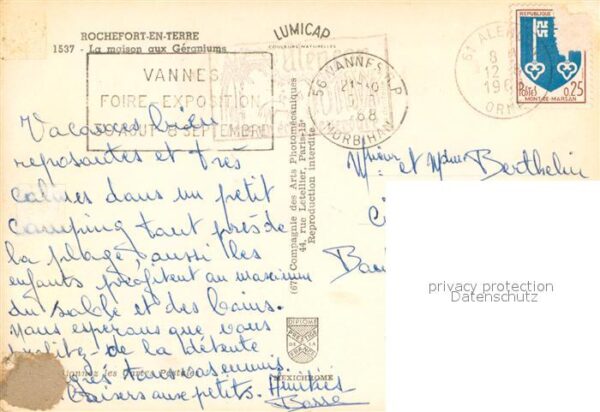 ROCHEFORT-EN-TERRE
1537 - La maison aux Géraniums
LUMICAP
COULEURS NATURELLES
VANNES
FOIRE EXPOSITION
30 AOUT 8 SEPTEMBRE
56 VANNES R.P
21-10
1968
MORBIHAN
61 ALEN
8
12
196
ORNE
REPUBLIQUE
POSTES
0,25
MONT-DE-MARSAN
Vacances bien
reposantes et très
calmes dans un petit
camping tout près de
la plage aussi les
enfants profitent au maximum
du sable et des bains.
Nous espérons que vous
profitez de la détente
après tous ces ennuis.
Baisers aux petits. Amitiés
Basse
Msieur et Mdme Berthelin
(67) Compagnie des Arts Photomécaniques
44, rue Letellier, Paris-15e
Reproduction interdite
DIPLOME
PRESTIGE
DE LA
FRANCE
MEXICHROME
privacy protection
Datenschutz